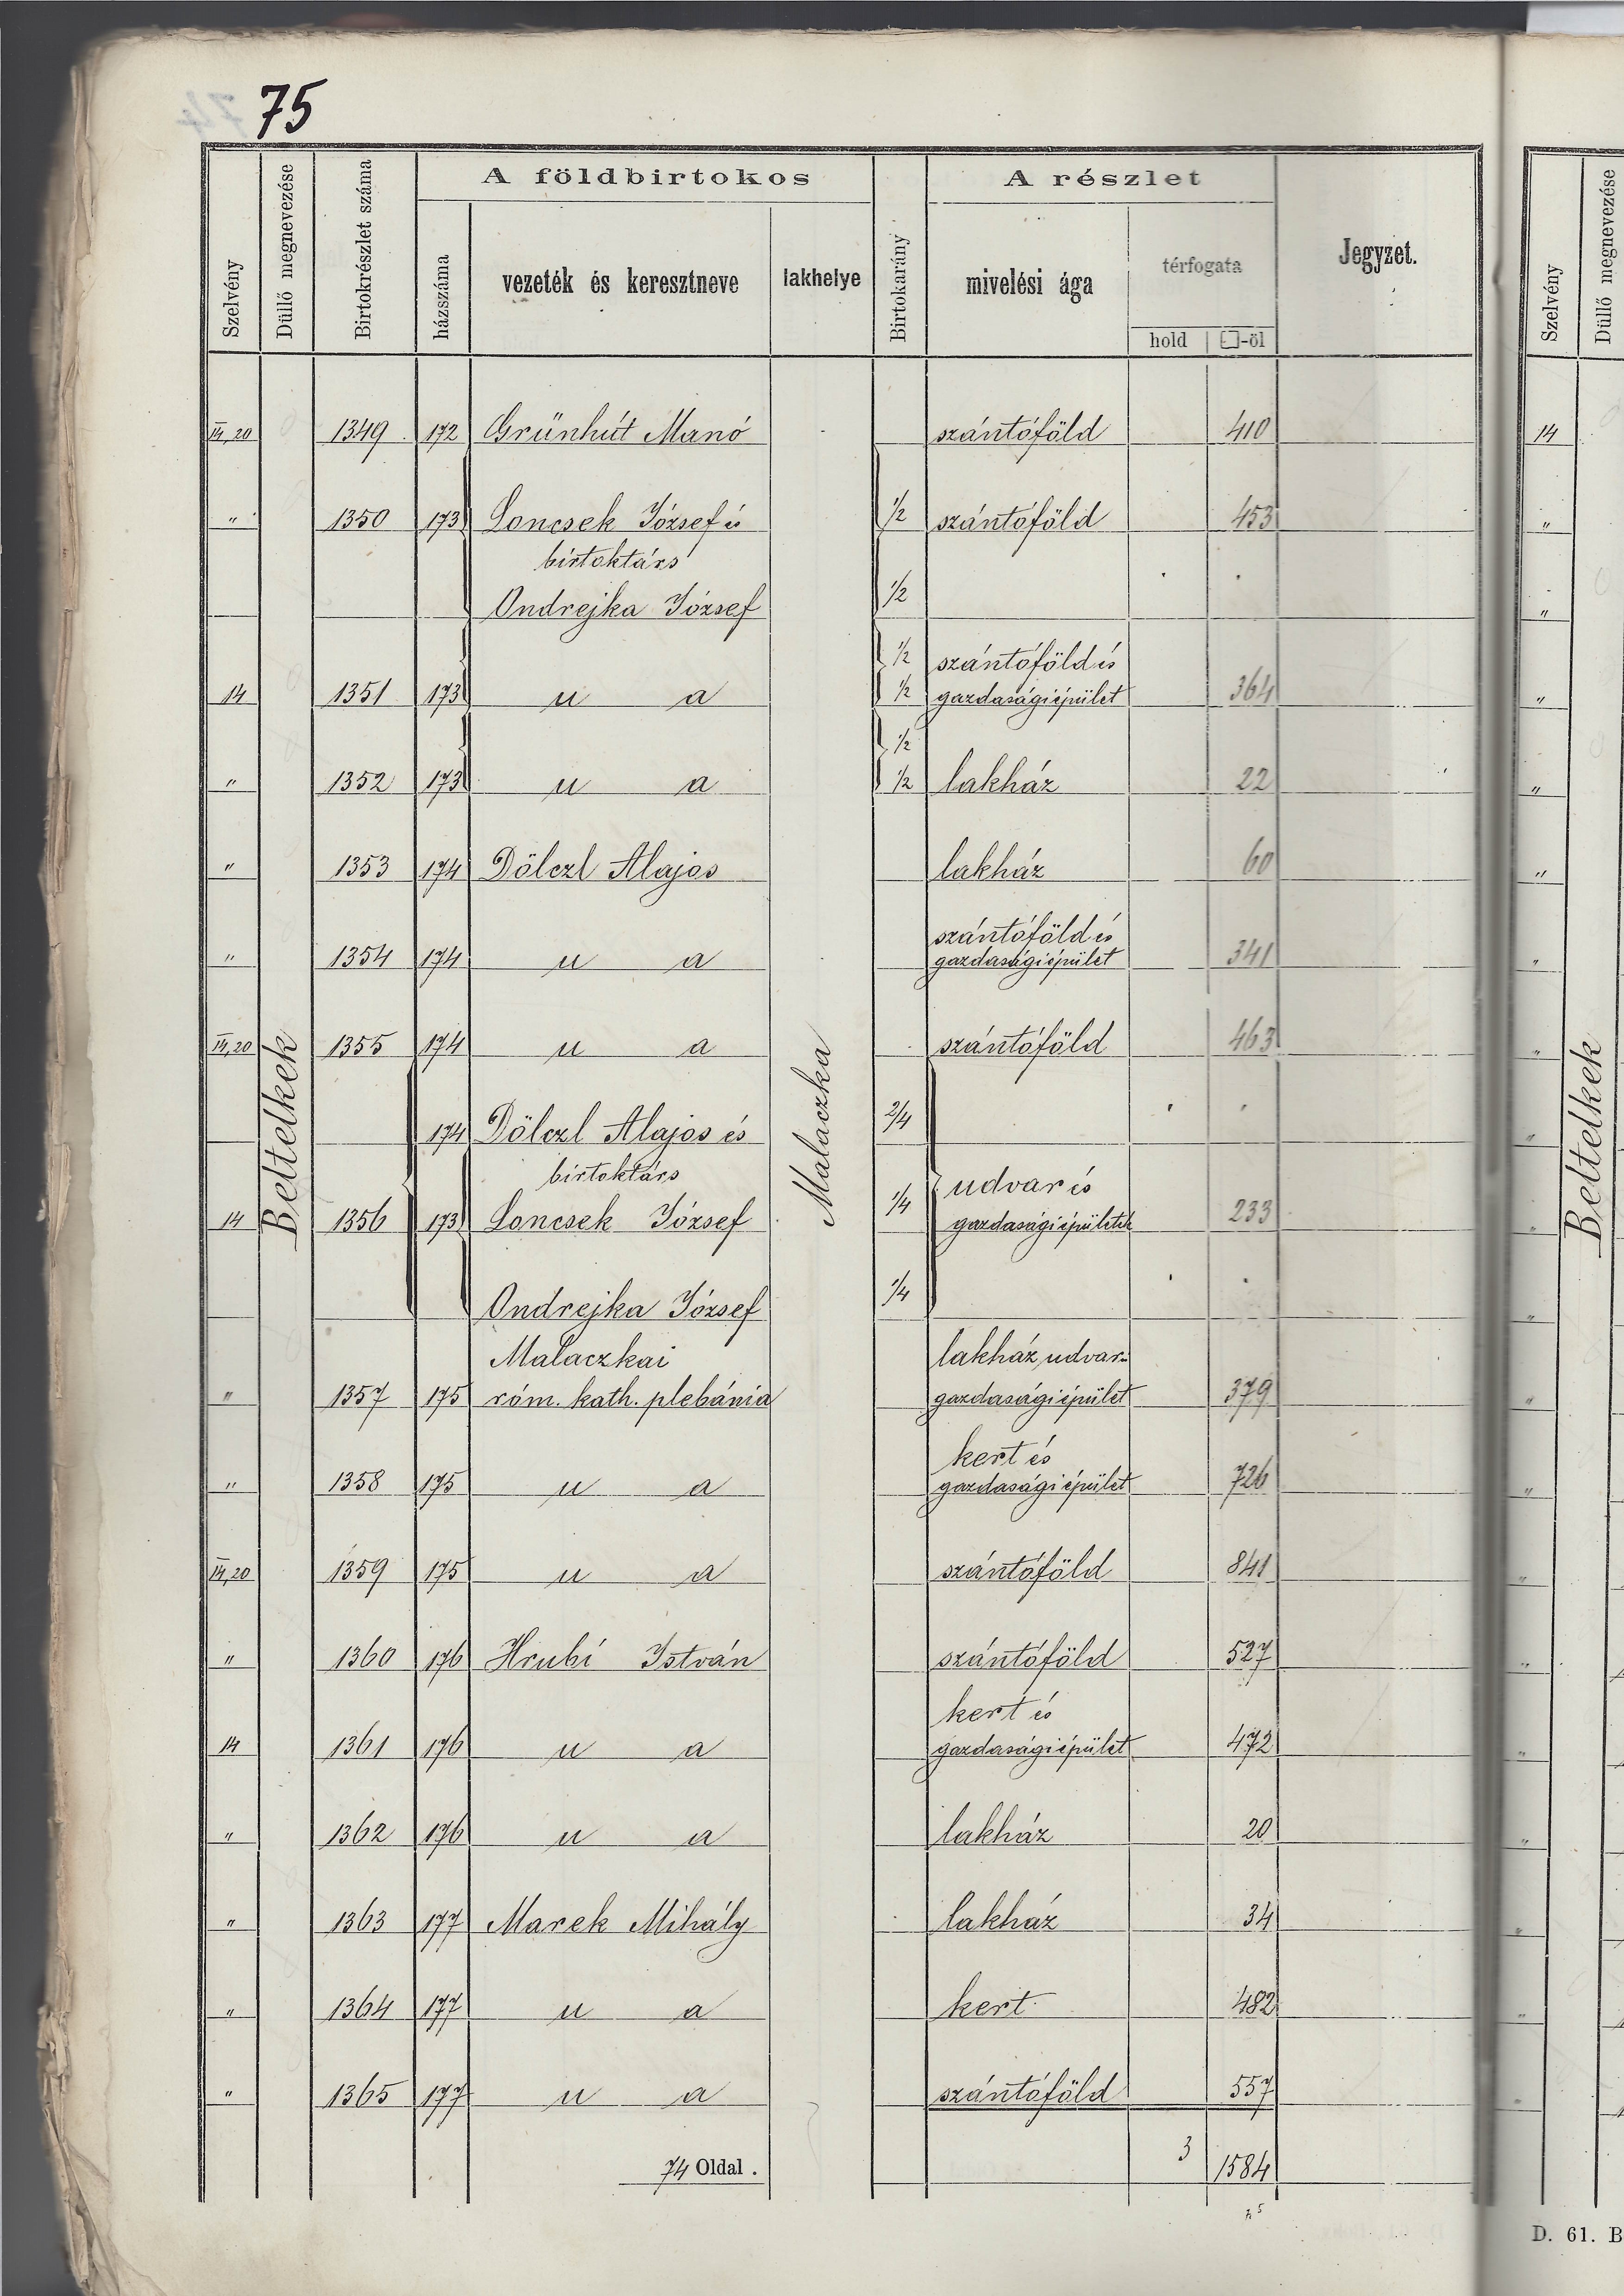 75
A földbirtokos
A részlet
Szelvény
Düllő megnevezése
Birtokrészlet száma
házszáma
vezeték és keresztneve
lakhelye
Birtokarány
mivelési ága
térfogata
hold
□-öl
Jegyzet.
Beltelkek
Malaczka
14,20 1349 172 Grünhút Manó szántóföld 410
" 1350 173 Loncsek József és 1/2 szántóföld 453
birtoktárs
Ondrejka József 1/2
1/2 szántóföld és
14 1351 173 u a 1/2 gazdasági épület 364
1/2
" 1352 173 u a 1/2 lakház 22
" 1353 174 Dölczl Alajos lakház 60
szántóföld és
" 1354 174 u a gazdasági épület 341
14,20 1355 174 u a szántóföld 463
174 Dölczl Alajos és 2/4
birtoktárs udvar és
14 1356 173 Loncsek József 1/4 gazdasági épületek 233
Ondrejka József 1/4
Malaczkai lakház, udvar
" 1357 175 róm. kath. plebánia gazdasági épület 379
kert és
" 1358 175 u a gazdasági épület 726
14,20 1359 175 u a szántóföld 841
" 1360 176 Hrubi István szántóföld 527
kert és
14 1361 176 u a gazdasági épület 472
" 1362 176 u a lakház 20
" 1363 177 Marek Mihály lakház 34
" 1364 177 u a kert 482
" 1365 177 u a szántóföld 557
74 Oldal. 3 1584
Szelvény
Düllő megnevezése
14
"
"
"
"
"
"
Beltelkek
D. 61. B